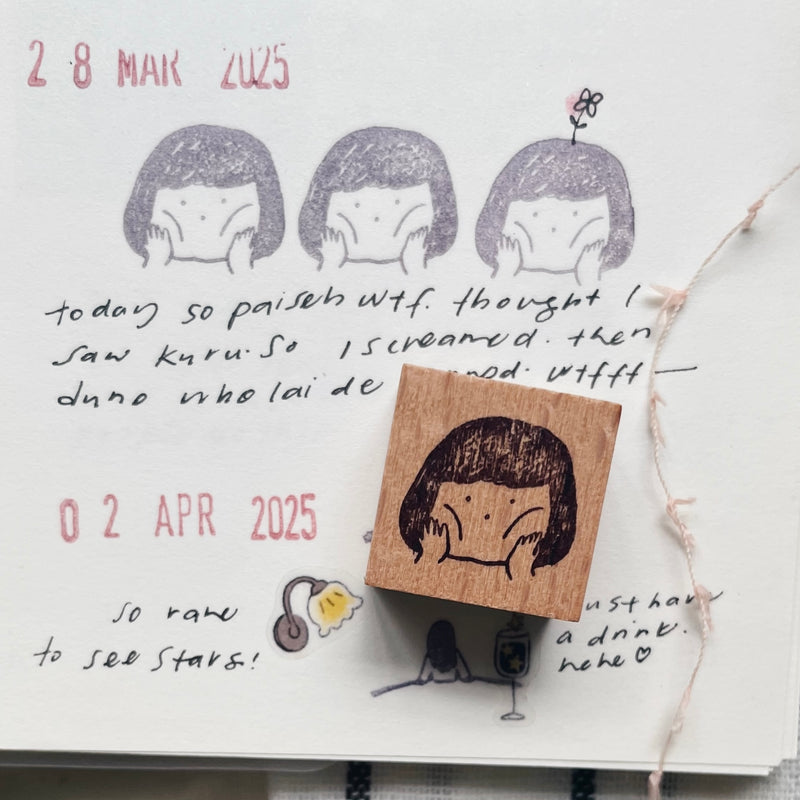 28 MAR 2025
today so paiseh wtf. thought I
saw kuru. So I screamed. then
duno who lai de wtfft —
02 APR 2025
so rare
to see stars!
ust have
a drink.
hehe ♡